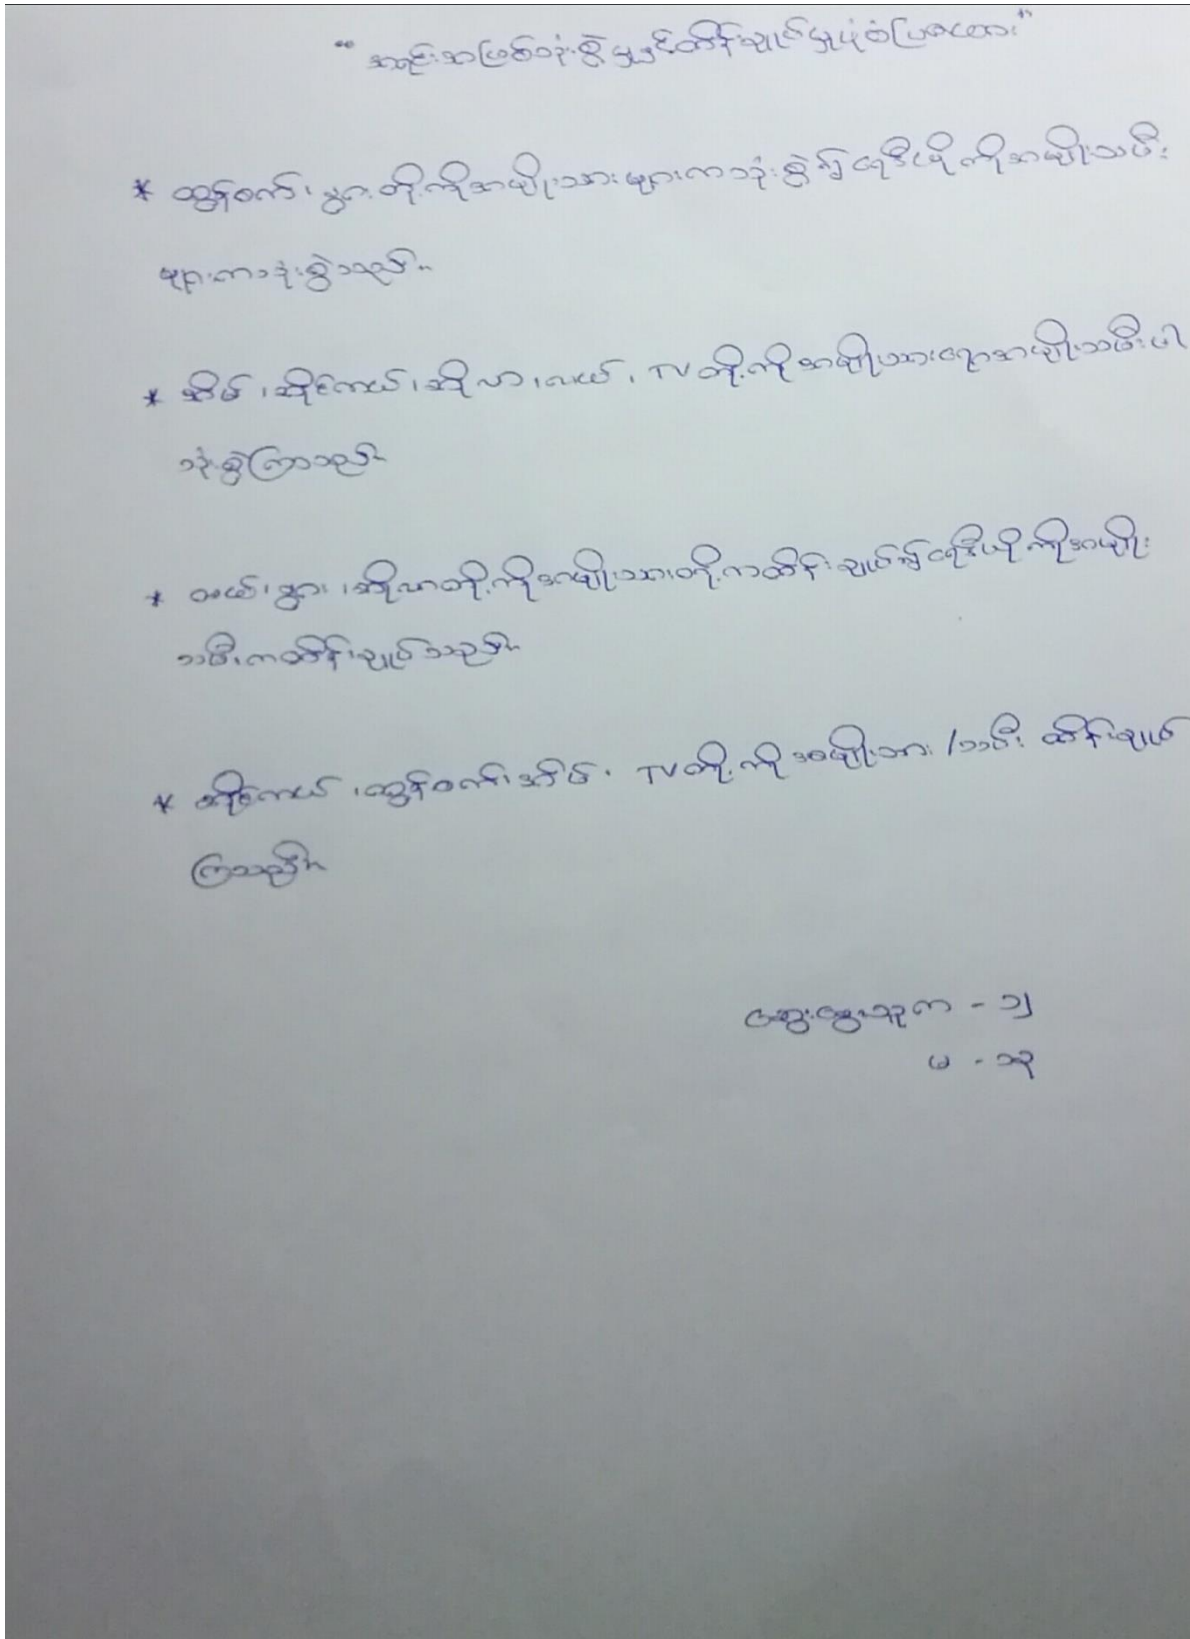 "အရင်းအမြစ်သုံးစွဲမှုနှင့်ထိန်းချုပ်မှုပုံစံပြဇယား"
* ထွန်စက်၊ နွား တို့ကိုအမျိုးသားများကသုံးစွဲ၍ ရေဒီယိုကိုအမျိုးသမီး
များကသုံးစွဲသည်။
* အိမ်၊ ဆိုင်ကယ်၊ ဆိုလာ၊ လယ်၊ TV တို့ကိုအမျိုးသားရောအမျိုးသမီးပါ
သုံးစွဲကြသည်။
* လယ်၊ နွား၊ ဆိုလာတို့ကိုအမျိုးသားတို့ကထိန်းချုပ်၍ ရေဒီယိုကိုအမျိုး
သမီးကထိန်းချုပ်သည်။
* ဆိုင်ကယ်၊ ထွန်စက်၊ အိမ်၊ TV တို့ကိုအမျိုးသား/သမီး ထိန်းချုပ်
ကြသည်။
ဆွေးနွေးသူက - ၁၂
မ - ၁၃